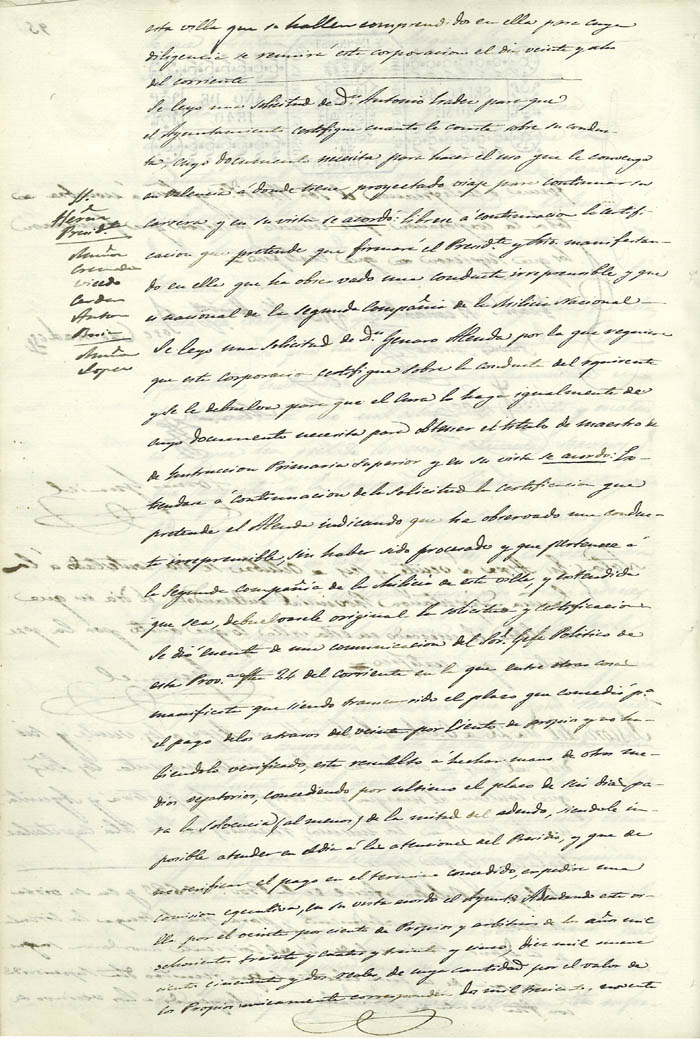 esta villa que se hallen comprendidos en ella para cuya
diligencia se reunirá esta corporacion el dia veinte y ocho
del corriente
Se leyo una solicitud de Dn. Antonio para que
el Ayuntamiento certifique cuanto le conste sobre su conduc-
ta, cuyo documento necesita para hacer el uso que le convenga
en Valencia á donde tiene proyectado viaje para continuar su
carrera y en su vista se acordó: librese á continuacion la certifi-
cacion que pretende que firmará el Presidte. y Srio. manifestan-
do en ella que ha observado una conducta irreprensible y que
es nacional de la segunda Compañia de la Milicia Nacional
Se leyo una solicitud de Dn. Genaro Alenda por la que requiere
que esta corporacion certifique sobre la conducta del requirente
y se le debuelva para que el Cura lo haga igualmente de
cuyo documento necesita para obtener el titulo de maestro de
de Instruccion Primaria Superior y en su vista se acordó: Es-
tiendase á continuacion de la solicitud la certificacion que
pretende el Alenda indicando que ha observado una conduc-
ta irreprensible sin haber sido procesado y que pertenece á
la Segunda compañia de la Milicia de esta villa, y estendida
que sea, debuelvasele original la solicitud y certificacion
Se dió cuenta de una comunicacion del Sor. Gefe Politico de
esta Prova. fha 24 del corriente en la que entre otras cosas
manifiesta que siendo transcurrido el plazo que concedió pa.
el pago delos atrasos del veinte por Ciento de Propios y no ha-
biendolo verificado, esta resuelto á hechar mano de otros me-
dios vejatorios, concediendo por ultimo el plazo de seis dias pa-
ra la solvencia (al menos) de la mitad del adeudo, siendole im-
posible atender en el dia á las atenciones del Presidio, y que de
no verificar el pago en el termino concedido, expedira una
comision egecutiva, en su vista acordo el Ayunto. Adeudando esta vi-
lla por el veinte por ciento de Propios y arbitrios de los años mil
ochocientos treinta y cuatro y treinta y cinco, diez mil nueve
cientos cincuenta y dos reales, de cuya cantidad por el valor de
los Propios unicamente corresponden dos mil trecientos noventa
Sr.
Presidte.
Muñoz
Vicedo
Cerdan
Anton
Muñoz
Lopez